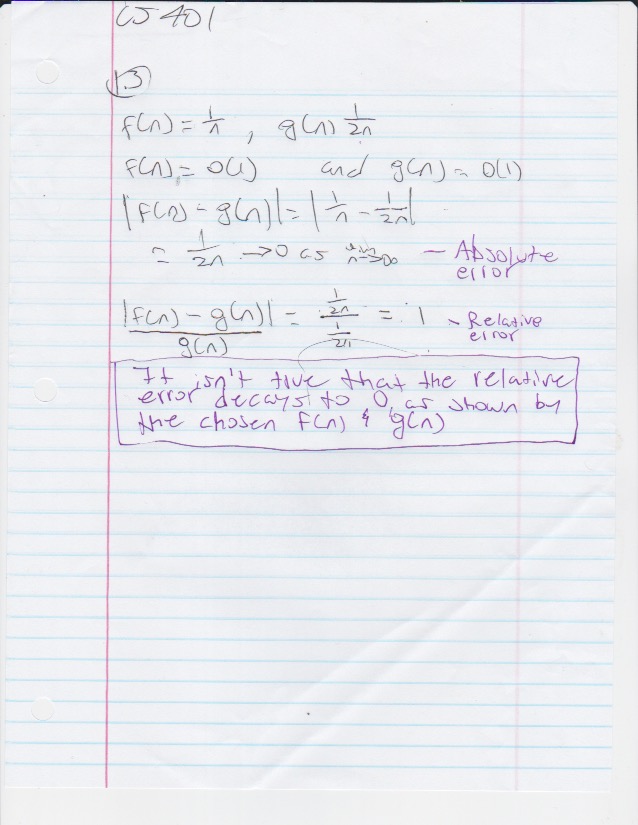 CS 401
13
f(n) = 1/n , g(n) 1/2n
f(n) = O(1) and g(n) = O(1)
|f(n) - g(n)| = |1/n - 1/2n|
= 1/2n → 0 as n→∞ - Absolute error
|f(n) - g(n)| / g(n) = 1/2n / 1/2n = 1 - Relative error
It isn't true that the relative
error decays to 0, as shown by
the chosen f(n) & g(n)